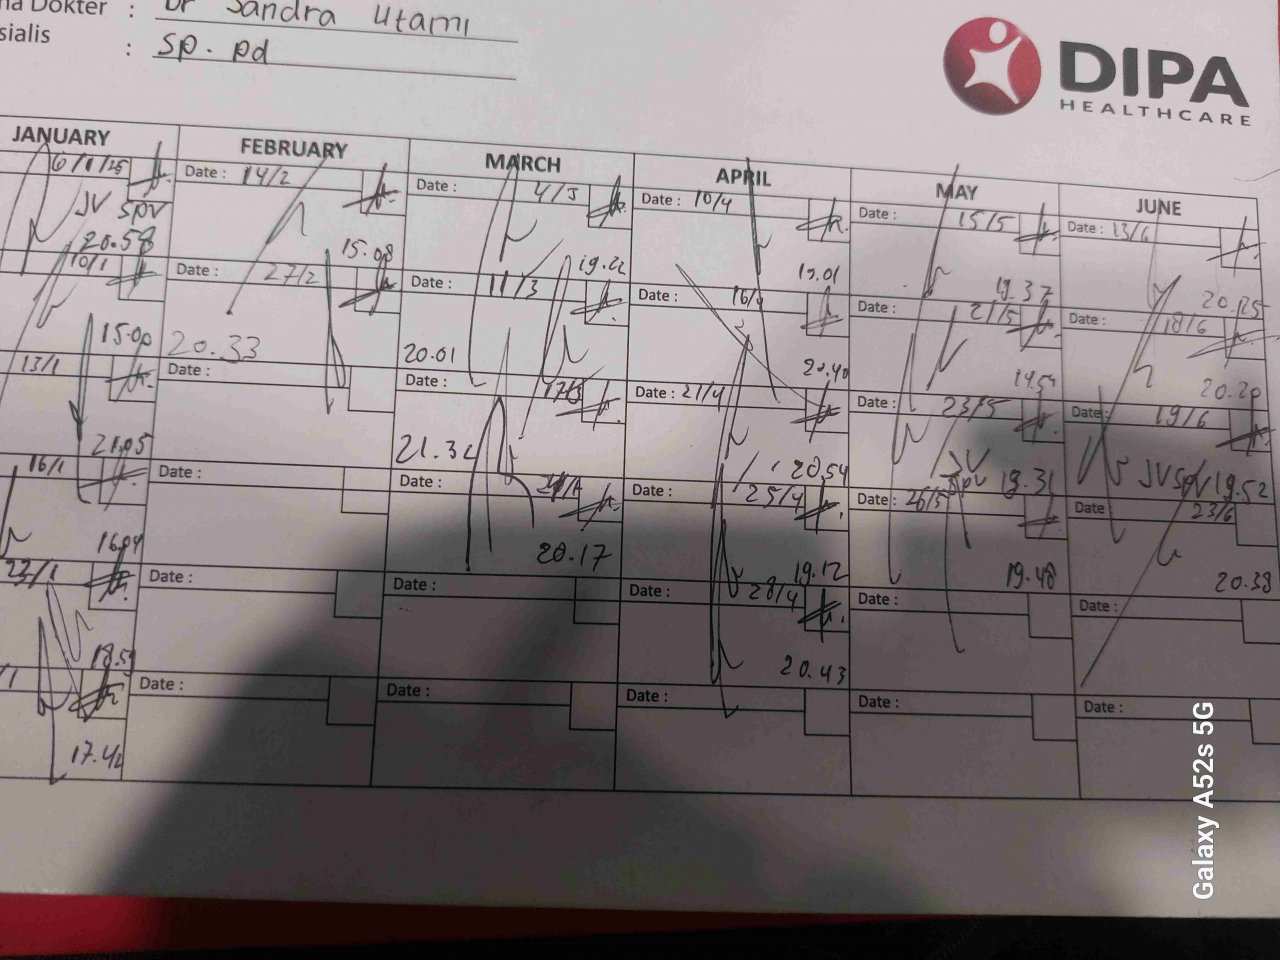 Dokter : Dr Sandra Utami
sialis : Sp. pd
DIPA
HEALTHCARE
JANUARY FEBRUARY MARCH APRIL MAY JUNE
6/1/25 Date : 14/2 Date : 4/3 Date : 10/4 Date : 15/5 Date : 13/6
JV Spv
20.58 15.08 19.22 19.01 19.37 20.25
10/1 Date : 27/2 Date : 11/3 Date : 16/4 Date : 21/5 Date : 18/6
15.00 20.33 20.01 20.40 20.20
13/1 Date : Date : 17/3 Date : 21/4 Date : 23/5 Date : 19/6
21.05 20.54 JV Spv 19.31 JV Spv 19.52
16/1 Date : Date : Date : 25/4 Date : 26/5 Date : 23/6
16.04 20.17 19.12 19.48 20.38
Date : Date : Date : 28/4 Date : Date :
18.59 20.43
Date : Date : Date : Date : Date :
17.42
Galaxy A52s 5G